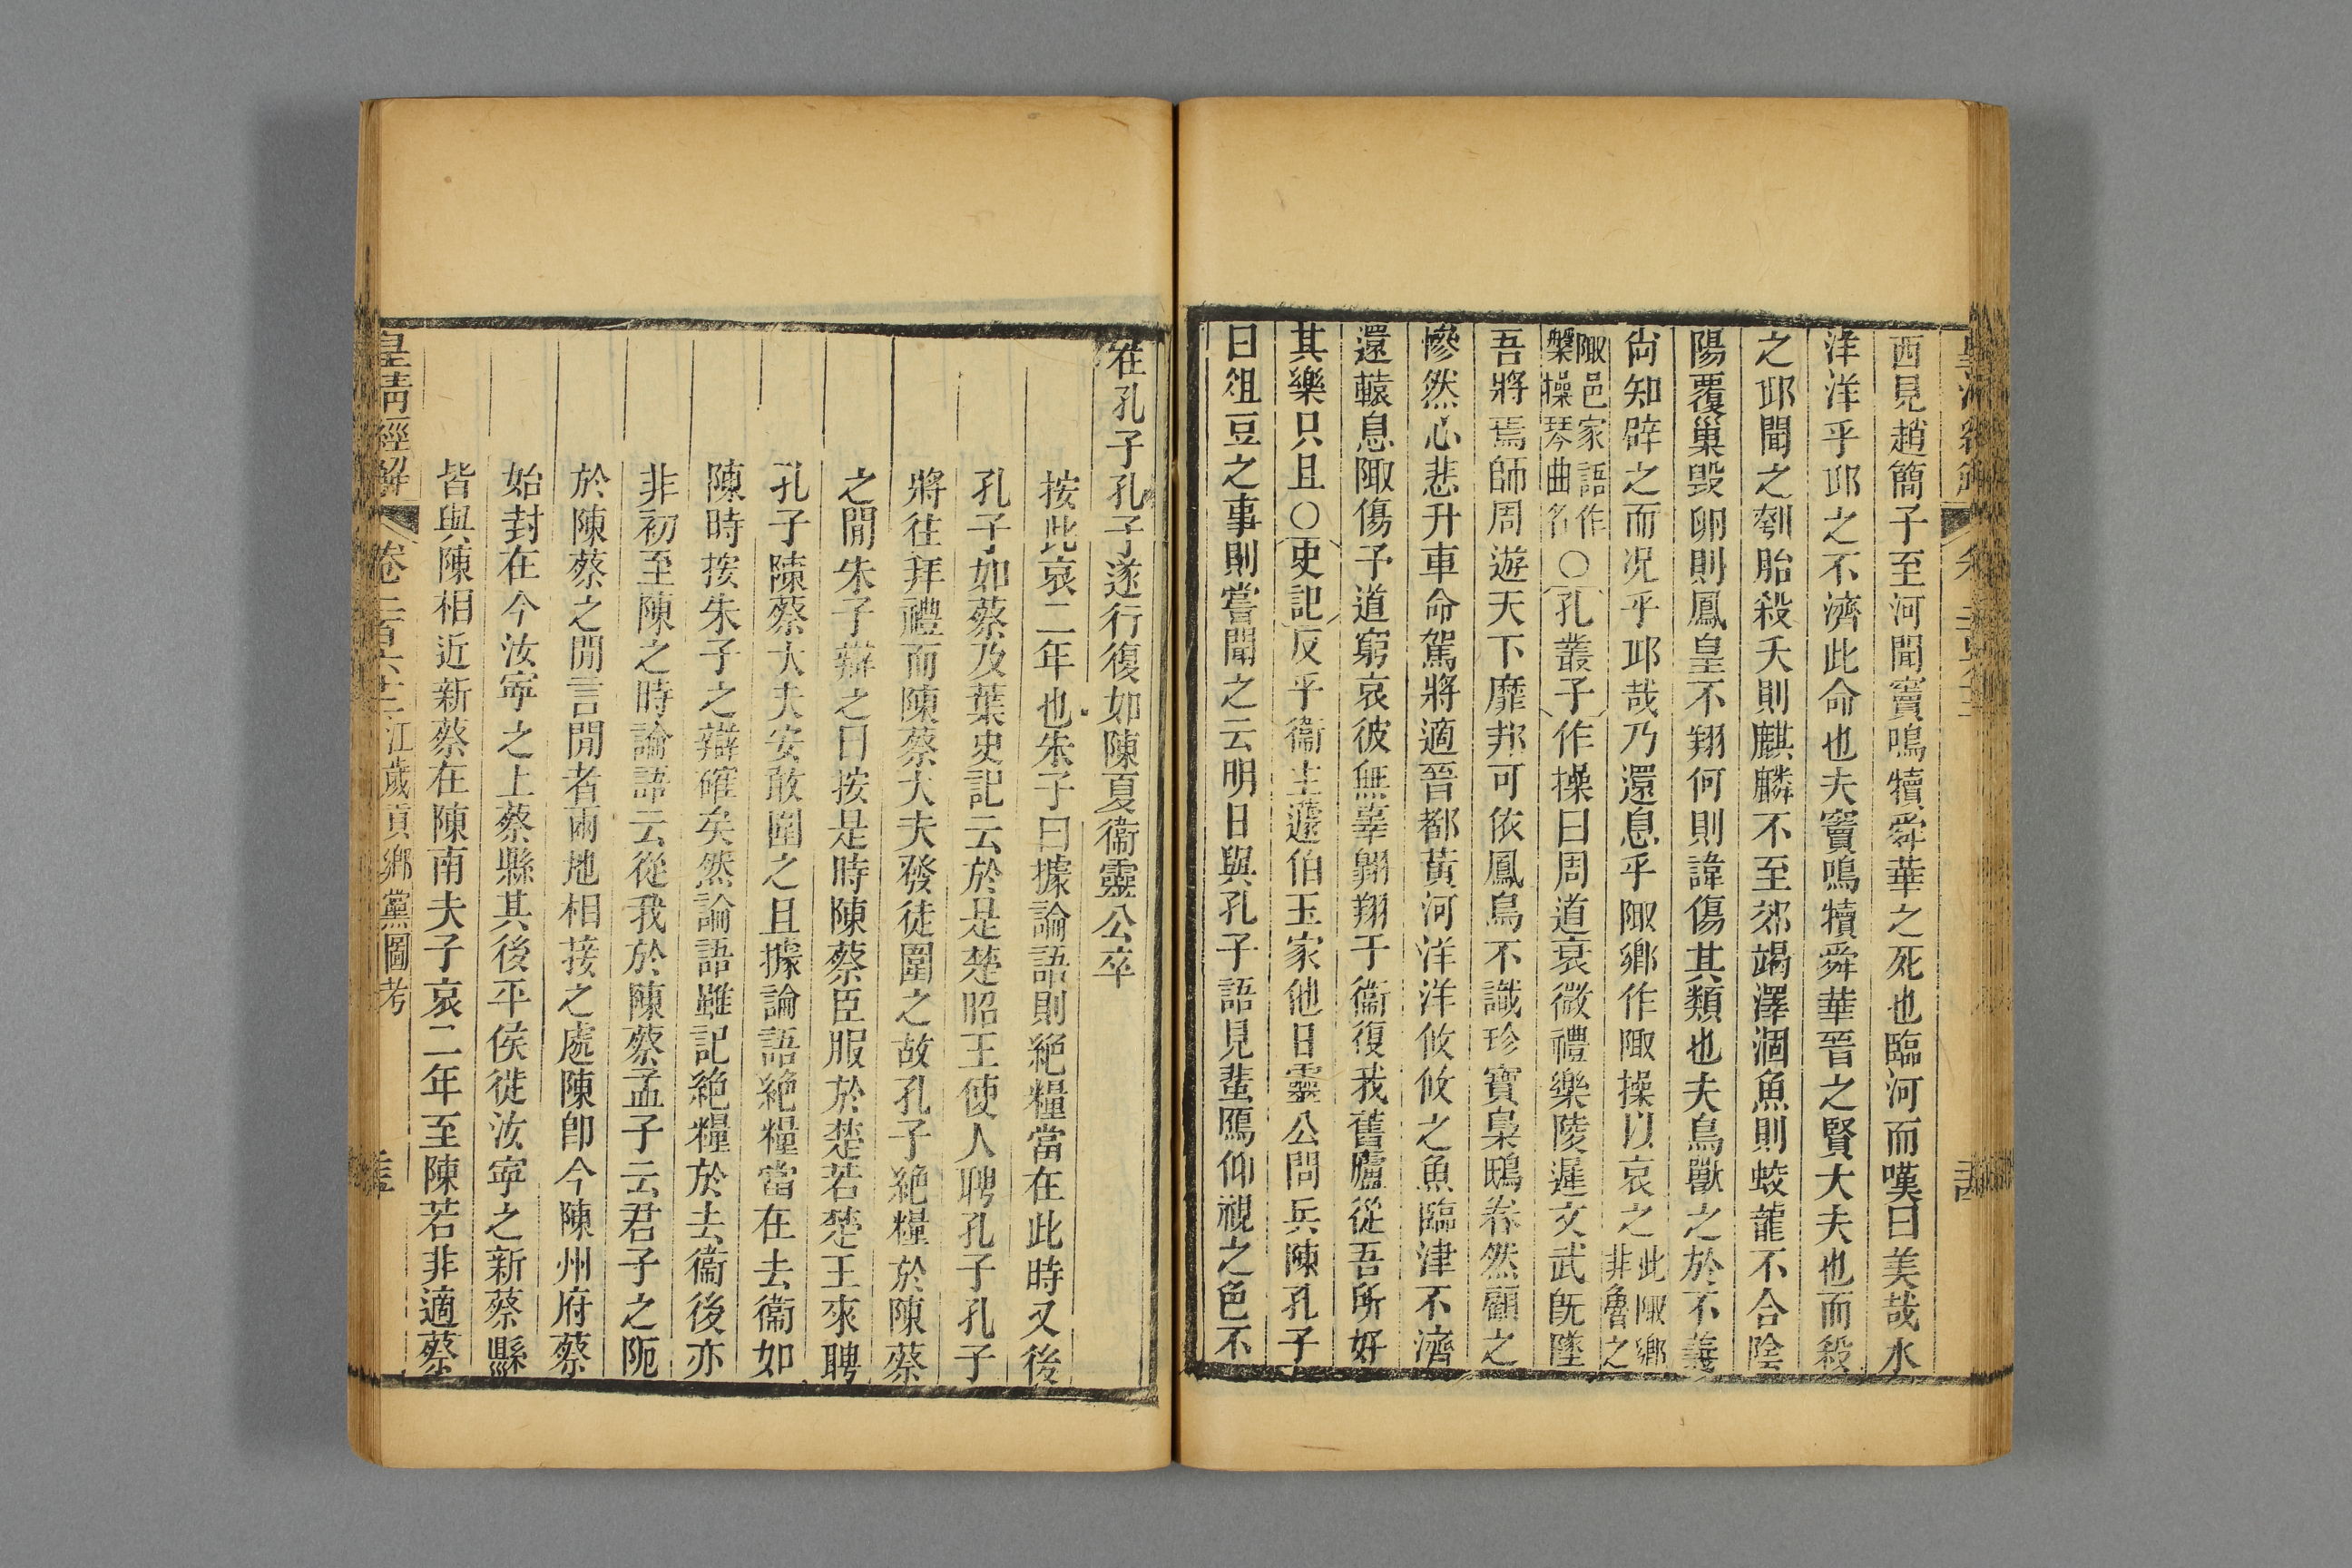 西見趙簡子至河聞竇鳴犢舜華之死也臨河而嘆曰美哉水
洋洋乎邱之不濟此命也夫竇鳴犢舜華晉之賢大夫也而殺
之邱聞之刳胎殺夭則麒麟不至郊竭澤涸魚則蛟龍不合陰
陽覆巢毀卵則鳳皇不翔何則諱傷其類也夫鳥獸之於不義
尙知辟之而况乎邱哉乃還息乎陬鄉作陬操以哀之此陬鄉非魯之
陬邑家語作槃操琴曲名○孔叢子作操曰周道衰微禮樂陵遲文武旣墜
吾將焉師周遊天下靡邦可依鳳鳥不識珍寶梟鴟眷然顧之
慘然心悲升車命駕將適晉都黃河洋洋攸攸之魚臨津不濟
還轅息陬傷予道窮哀彼無辜翺翔于衞復我舊廬從吾所好
其樂只且○史記反乎衞主蘧伯玉家他日靈公問兵陳孔子
曰俎豆之事則嘗聞之云明日與孔子語見蜚鴈仰視之色不
在孔子孔子遂行復如陳夏衞靈公卒
按此哀二年也朱子曰據論語則絕糧當在此時又後
孔子如蔡及葉史記云於是楚昭王使人聘孔子孔子
將往拜禮而陳蔡大夫發徒圍之故孔子絕糧於陳蔡
之閒朱子辯之曰按是時陳蔡臣服於楚若楚王來聘
孔子陳蔡大夫安敢圍之且據論語絕糧當在去衞如
陳時按朱子之辯確矣然論語雖記絕糧於去衞後亦
非初至陳之時論語云從我於陳蔡孟子云君子之阨
於陳蔡之閒言閒者兩地相接之處陳卽今陳州府蔡
始封在今汝寧之上蔡縣其後平侯徙汝寧之新蔡縣
皆與陳相近新蔡在陳南夫子哀二年至陳若非適蔡
皇淸經解 卷二百六十三 江歲貢鄉黨圖考